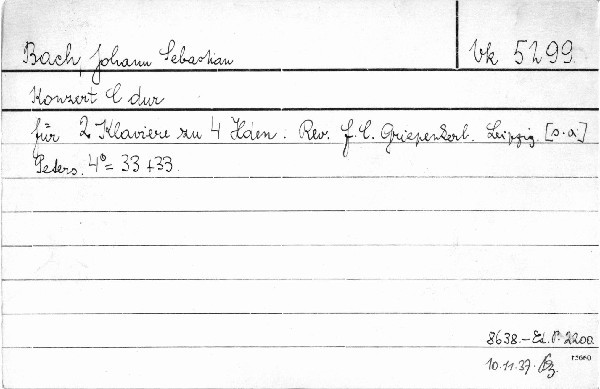 Bach, Johann Sebastian
Vk 5299.
Konzert C dur
für 2 Klaviere zu 4 Hden. Rev. F. C. Griepenkerl. Leipzig. [s.a.]
Peters. 4° = 33 + 33.
8638. - Ed. P. 2200.
10.11.37.